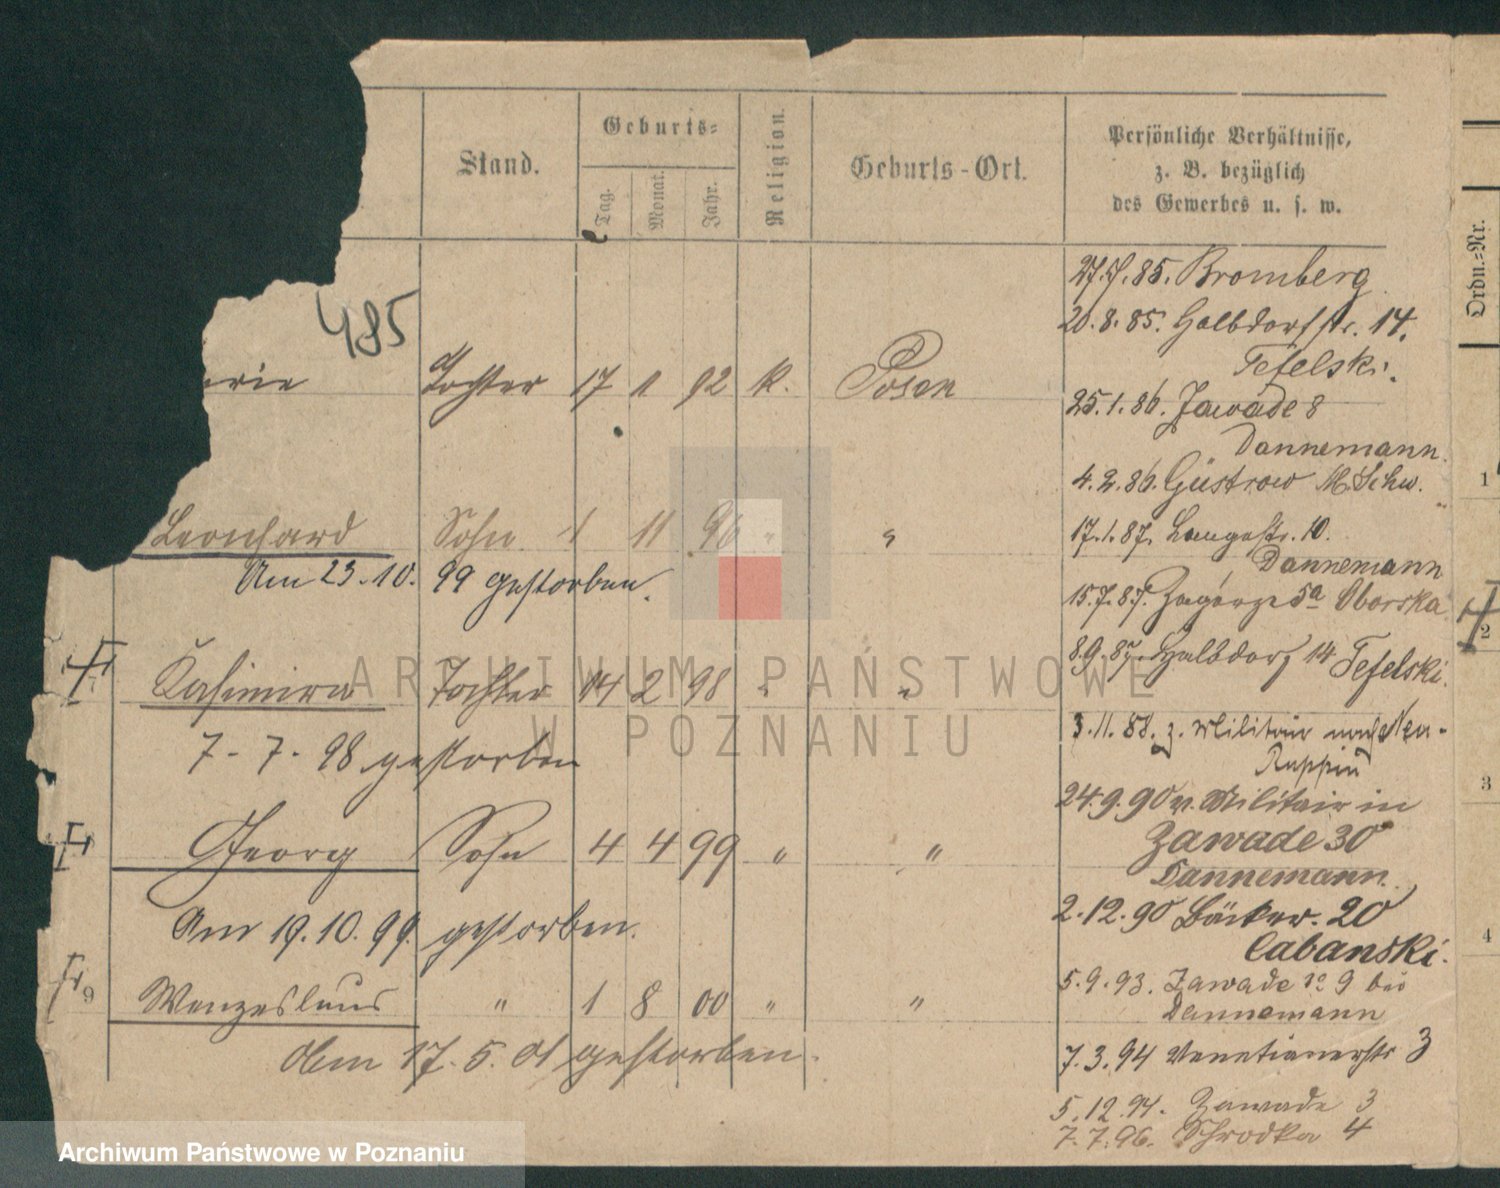 Stand.
Geburts-
Tag.
Monat.
Jahr.
Religion.
Geburts-Ort.
Persönliche Verhältnisse,
z. B. bezüglich
des Gewerbes u. s. w.
Ordn.-Nr.
485
27.7.85. Bromberg
20.8.85. Halbdorfstr. 14.
Tefelski.
arie Tochter 17 1 92 k. Posen
25.1.86. Zawade 8
Dannemann.
4.2.86. Güstrow M. Schw.
Leonhard Sohn 1 11 96 " "
17.1.87. Langestr. 10.
Dannemann
Am 23.10.99 gestorben.
15.7.87. Zagórze 5a Oborska
8.9.87. Halbdorf 14 Tefelski.
Kasimira Tochter 14 2 98 " "
3.11.88. z. Militair nach Neu-
Ruppin
7-7-98 gestorben
24.9.90 v. Militair in
Zawade 30
Dannemann.
Georg Sohn 4 4 99 " "
2.12.90 Bäcker. 20
Cabanski.
Am 19.10.99. gestorben.
5.9.93. Zawade No 9 bei
Dannemann
9 Wenzeslaus " 1 8 00 " "
7.3.94 Venetianerstr 3
Am 17.5.01 gestorben.
5.12.94. Zawade 3
7.7.96. Schrodka 4
1
2
3
4
ARCHIWUM PAŃSTWOWE
W POZNANIU
Archiwum Państwowe w Poznaniu